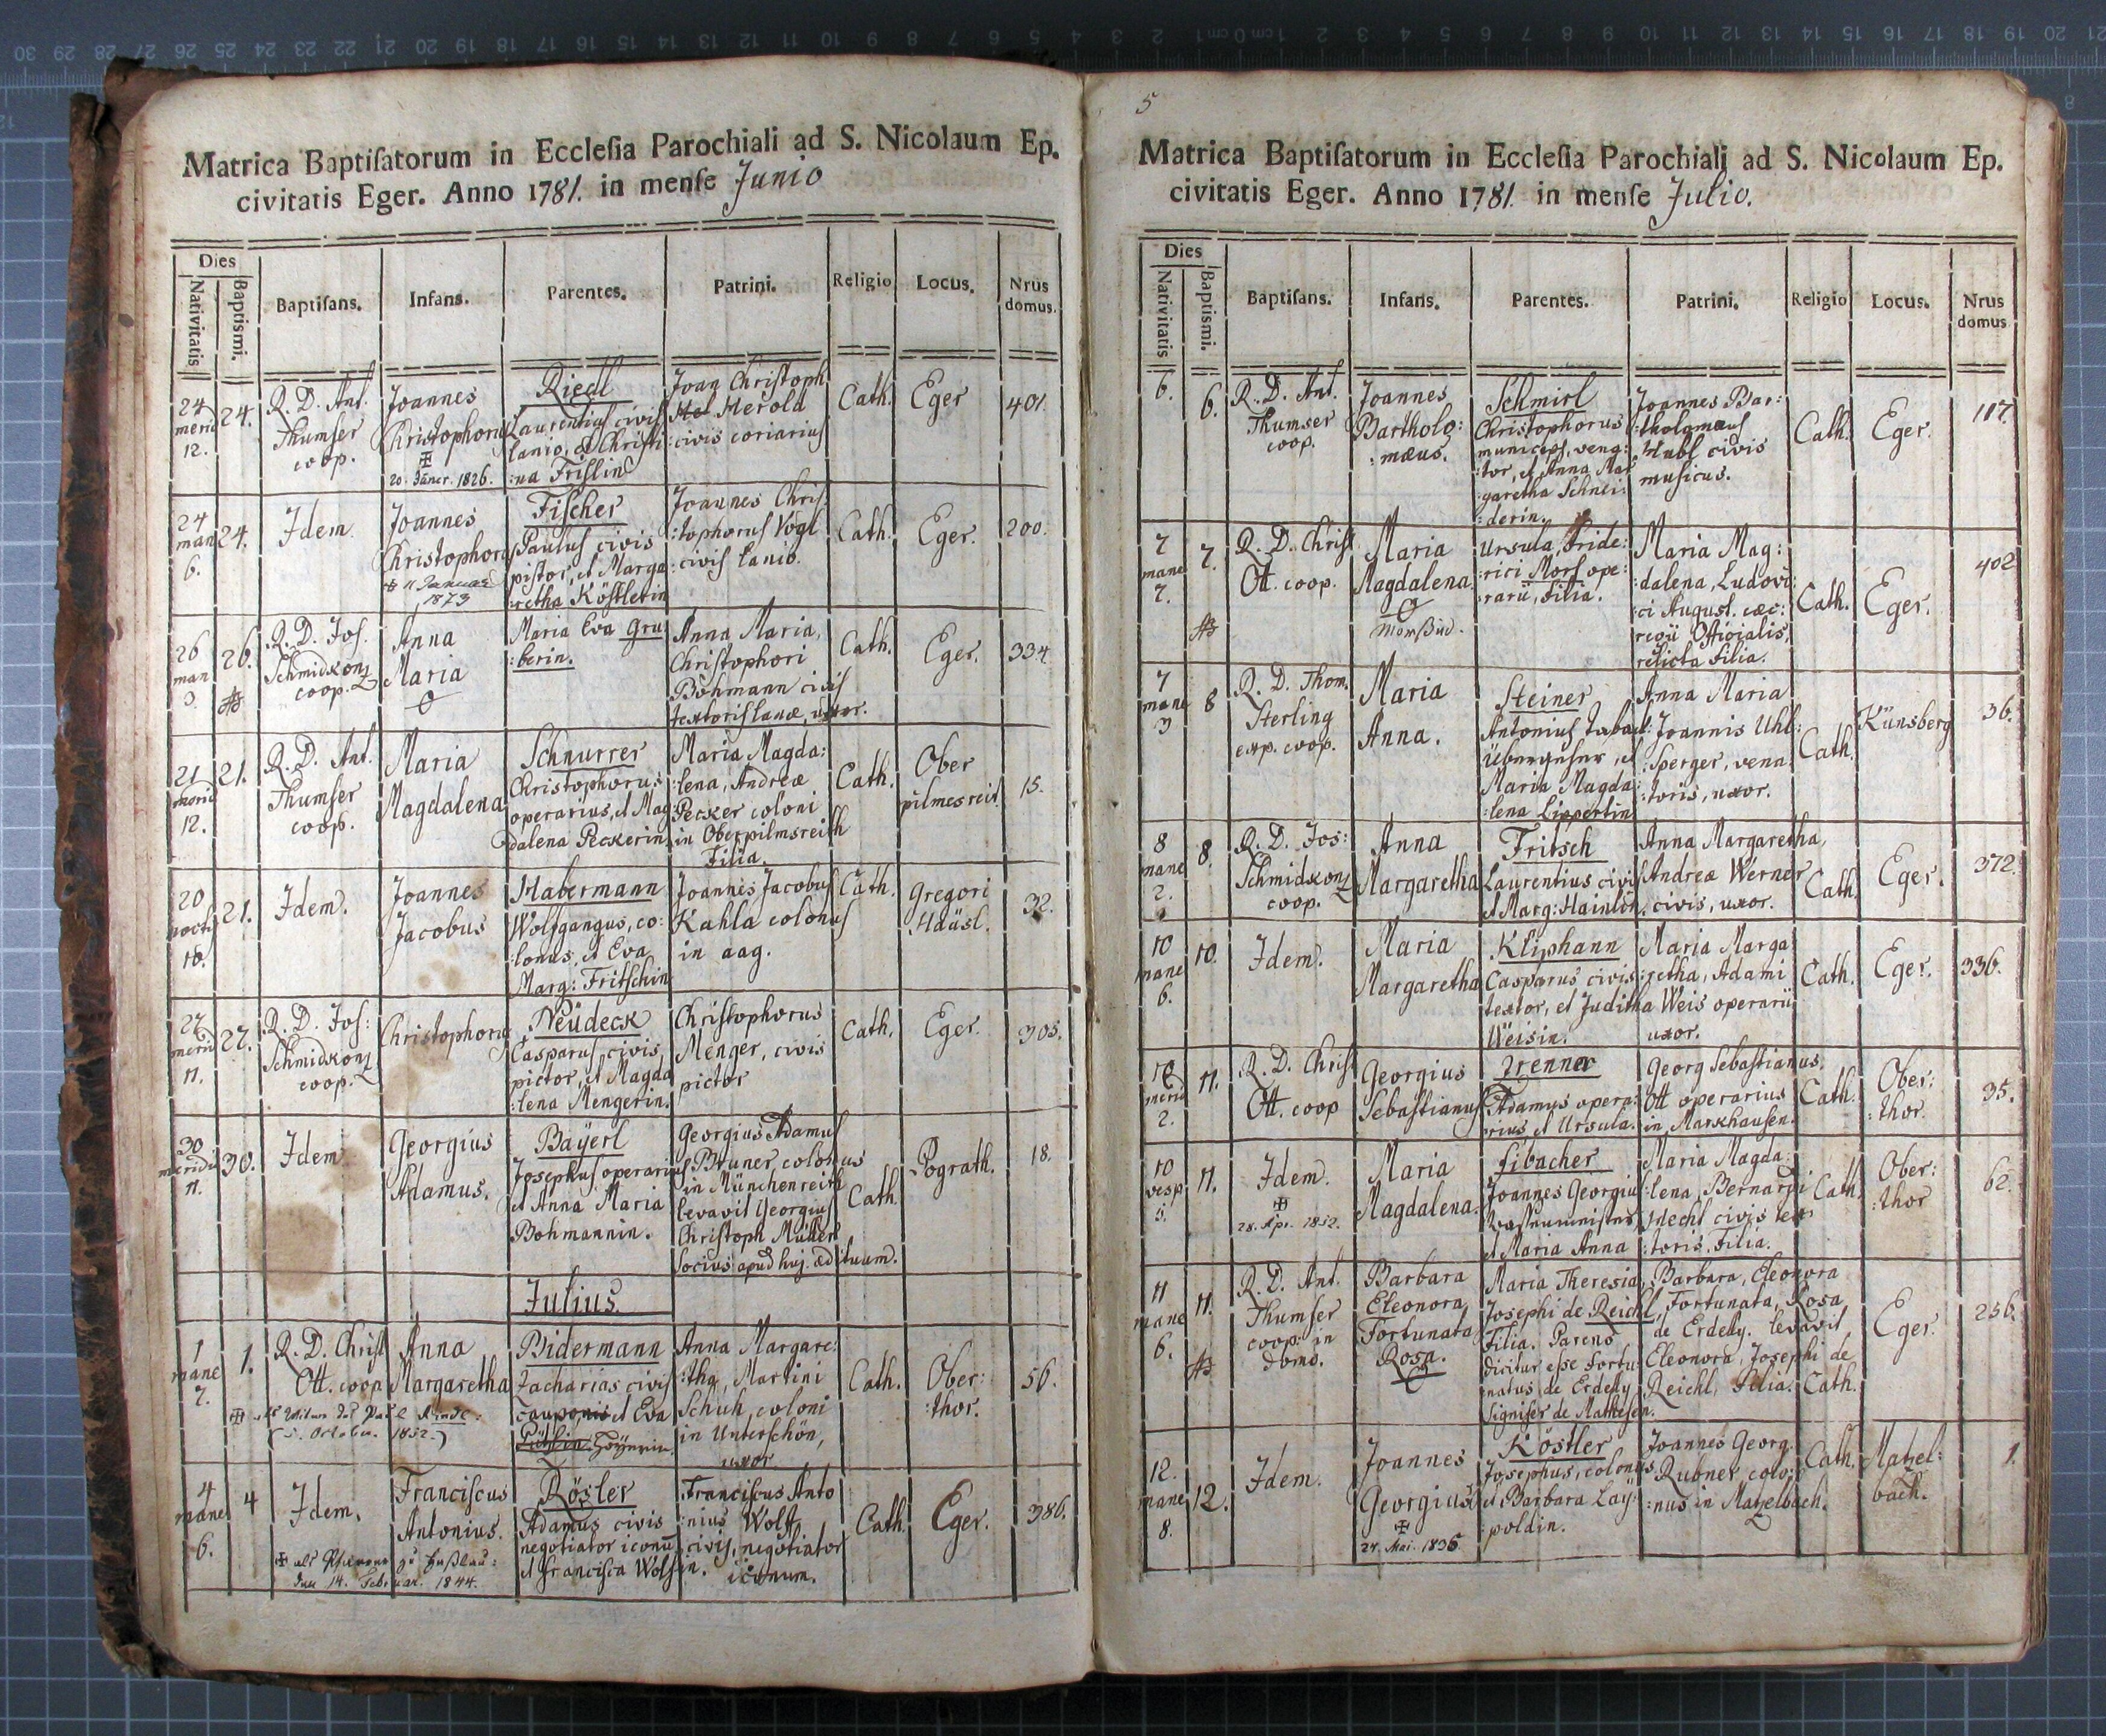 Matrica Baptiſatorum in Eccleſia Parochiali ad S. Nicolaum Ep.
civitatis Eger. Anno 1781. in menſe Junio
Dies
Nativitatis
Baptismi.
Baptiſans.
Infans.
Parentes.
Patrini.
Religio
Locus.
Nrus
domus.
24
merid
12.
24.
R. D. Ant.
Thumser
coop.
Joannes
Christophorus
20. Jäner. 1826.
Riedl
Laurentius civis
lanio, et Christi
:na Frislin
Joan Christoph
Herold
civis coriarius
Cath.
Eger
401.
24
man
6.
24.
Idem.
Joannes
Christophorus
11 Januar
1873
Fischer
Paulus civis
pistor, et Marga
:retha Köstlerin
Joannes Chris
:tophorus Vogl
civis lanio.
Cath.
Eger.
200.
26
man
3.
26.
R. D. Jos.
Schmidkonz
coop.
Anna
Maria
Maria Eva Gru
:berin.
Anna Maria,
Christophori
Bohmann civis
textoris lanæ, uxor.
Cath.
Eger.
334.
21
merid
12.
21.
R. D. Ant.
Thumser
coop.
Maria
Magdalena
Schnurrer
Christophorus
operarius, et Mag
dalena Peckerin
Maria Magda:
:lena, Andreæ
Pecker coloni
in Oberpilmsreith
Filia.
Cath.
Ober
pilmesreit
15.
20
noct
10.
21.
Idem.
Joannes
Jacobus
Habermann
Wolfgangus, co:
:lonus, et Eva
Marg: Fritschin
Joannes Jacobus
Kahla colonus
in aag.
Cath.
Gregori
Häusl.
32.
27
merid
11.
27.
R. D. Jos:
Schmidkonz
coop.
Christophorus
Neudeck
Casparus, civis,
pictor, et Magda
:lena Mengerin.
Christophorus
Menger, civis
pictor
Cath.
Eger.
305.
30
meridi
11.
30.
Idem
Georgius
Adamus.
Bäyerl
Josephus operarius
et Anna Maria
Bohmannin.
Georgius Adamus
Bruner, colonus
in Münchenreith
levavit Georgius
Christoph Müller
Socius apud huj. ædituum.
Cath.
Pograth.
18.
Julius.
1
mane
7.
1.
R. D. Christ
Ott. coop
Anna
Margaretha
(5. October. 1852.)
Bidermann
Zacharias civis
caupo, et Eva
Anna Margare:
:tha, Martini
Schuh, coloni
in Unterschön,
uxor
Cath.
Ober:
:thor.
56.
4
mane
6.
4
Idem.
Franciscus
Antonius.
den 14. Februar. 1844.
Rösler
Adamus civis
negotiator iconū
et Francisca Wolfin.
Franciscus Anto
:nius Wolf
civis, negotiator
iconum.
Cath.
Eger.
386.
5
Matrica Baptiſatorum in Eccleſia Parochiali ad S. Nicolaum Ep.
civitatis Eger. Anno 1781. in menſe Julio.
Dies
Nativitatis
Baptismi.
Baptiſans.
Infans.
Parentes.
Patrini.
Religio
Locus.
Nrus
domus
6.
6.
R. D. Ant.
Thumser
coop.
Joannes
Bartholo:
:mæus.
Schmirl
Christophorus
municeps, vena:
:tor, et Anna Mar
garetha Schnei:
:derin.
Joannes Bar:
:tholomæus
Hubl civis
musicus.
Cath.
Eger.
117.
7
mane
7.
7.
R. D. Christ
Ott. coop.
Maria
Magdalena
Ursula, Fride:
:rici Mors ope:
:rarii, Filia.
Maria Mag:
:dalena, Ludovi
:ci August. cæs:
regii Officialis,
relicta Filia.
Cath.
Eger.
402
7
mane
3
8
R. D. Thom.
Sterling
exp. coop.
Maria
Anna.
Steiner
Antonius Taback
Überreuter, et
Maria Magda:
:lena Lippertin
Anna Maria
Joannis Uhl:
:sperger, vena
:toris, uxor.
Cath.
Künsberg
36.
8
mane
2.
8.
R. D. Jos:
Schmidkonz
coop.
Anna
Margaretha
Fritsch
Laurentius civis
et Marg: Hainlin.
Anna Margaretha,
Andreæ Werner
civis, uxor.
Cath.
Eger.
372.
10
mane
6.
10.
Idem.
Maria
Margaretha
Kliphann
Casparus civis
textor, et Juditha
Weisin.
Maria Marga
:retha, Adami
Weis operarii
uxor.
Cath.
Eger.
336.
10
merid
2.
11.
R. D. Christ
Ott. coop
Georgius
Sebastianus
Trenner
Adamus opera:
rius et Ursula.
Georg Sebastianus.
Ott operarius
in Markhausen.
Cath.
Ober:
:thor.
35.
10
vesp
5.
11.
Idem.
28. Apr. 1852.
Maria
Magdalena.
Fibacher
Joannes Georgius
et Maria Anna
Maria Magda:
:lena, Bernardi
Hecht civis tex
:toris, Filia.
Cath.
Ober:
:thor
62.
11
mane
6.
11.
R. D. Ant.
Thumser
coop: in
domo.
Barbara
Eleonora
Fortunata
Rosa.
Maria Theresia,
Josephi de Reichl,
Filia. Parens
dicitur esse Fortu
natus de Erdely
Signifer de Mathesen.
Barbara, Eleonora
Fortunata, Rosa
de Erdely. levavit
Eleonora, Josephi de
Reichl, Filia.
Cath.
Eger.
256.
12.
mane
8.
12.
Idem.
Joannes
Georgius
24. Mai. 1836.
Köstler
Josephus, colonus
et Barbara Läy:
:poldin.
Joannes Georg.
Rubner colo:
:nus in Matzelbach.
Cath.
Matzel:
bach.
1.